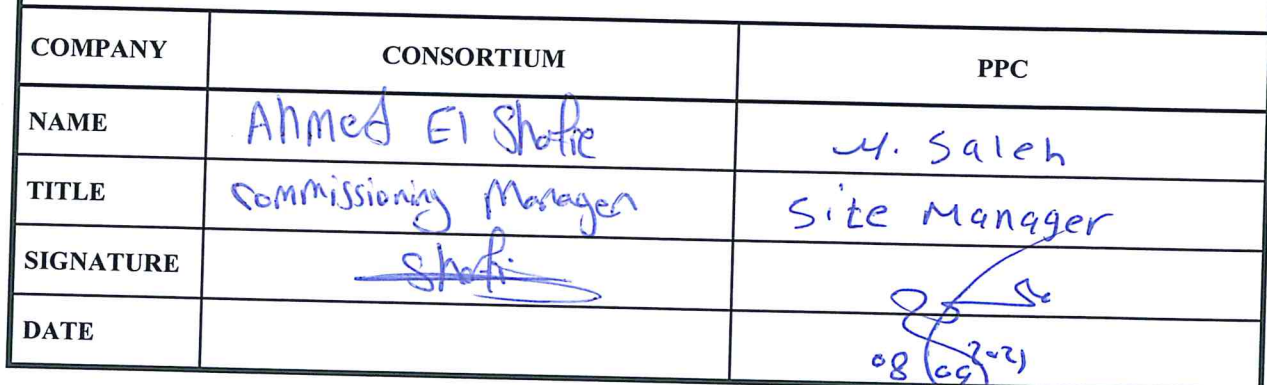 COMPANY CONSORTIUM PPC
NAME Ahmed El Shafie M. Saleh
TITLE Commissioning Manager Site Manager
SIGNATURE Shafi
DATE 08/09/2021